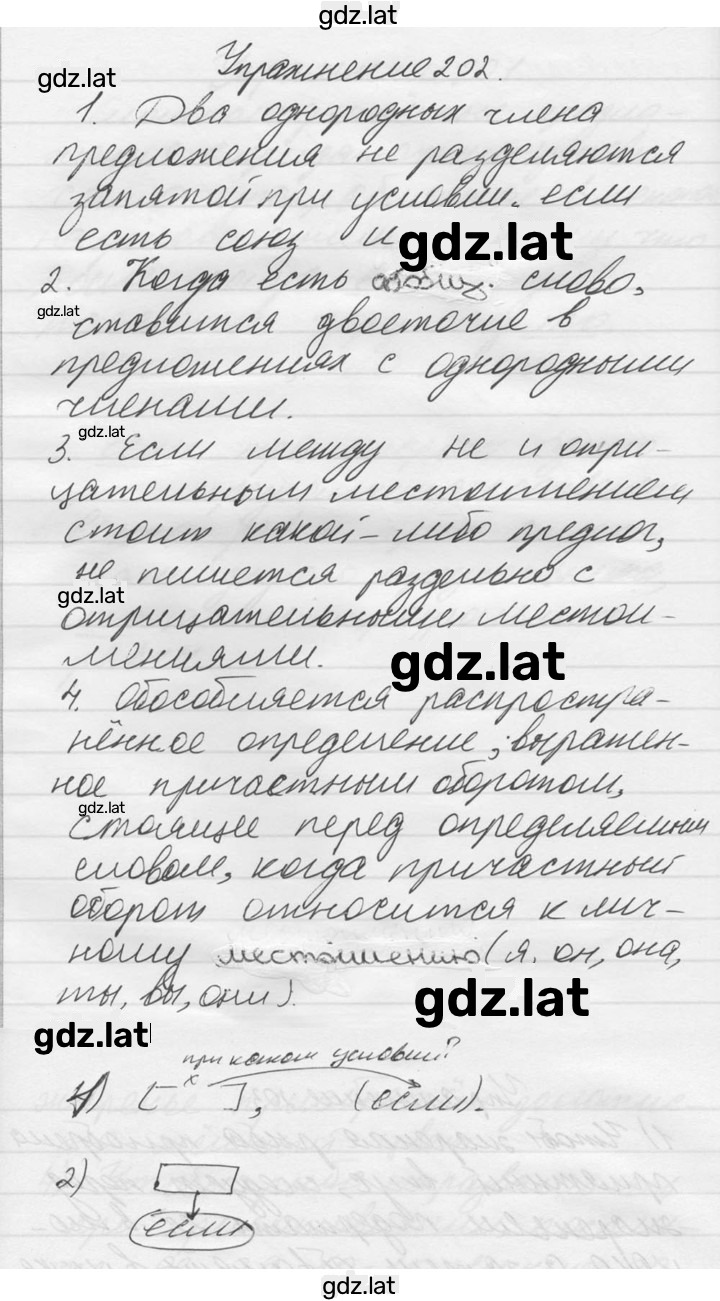 gdz.lat
Упражнение 202.
gdz.lat
1. Два однородных члена
предложения не разделяются
запятой при условии. если
есть союз и
gdz.lat
2. Когда есть обобщ. слово,
gdz.lat
ставится двоеточие в
предложениях с однородными
членами.
gdz.lat
3. Если между не и отри-
цательным местоимением
стоит какой-либо предлог,
не пишется раздельно с
gdz.lat
отрицательными местои-
мениями.
gdz.lat
4. Обособляется распростра-
нённое определение, выражен-
ное причастным оборотом,
gdz.lat
стоящее перед определяемым
словом, когда причастный
оборот относится к лич-
ному местоимению (я. он, она,
ты, вы, они).
gdz.lat
gdz.lat
при каком условии?
1) [ x ], (если).
2)
(если)
gdz.lat